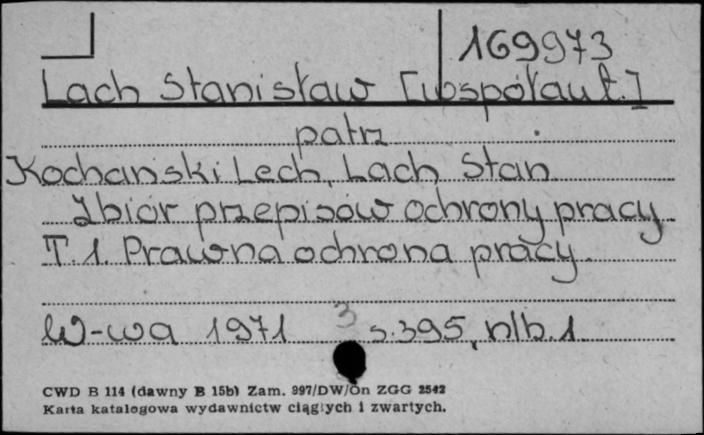 169973
Lach Stanisław [współaut.]
patrz
Kochański Lech, Lach Stan.
Zbiór przepisów ochrony pracy.
T. 1. Prawna ochrona pracy.
W-wa 1971 3 s. 395, nlb. 1
CWD B 114 (dawny B 15b) Zam. 997/DW/On ZGG 2542
Karta katalogowa wydawnictw ciągłych i zwartych.